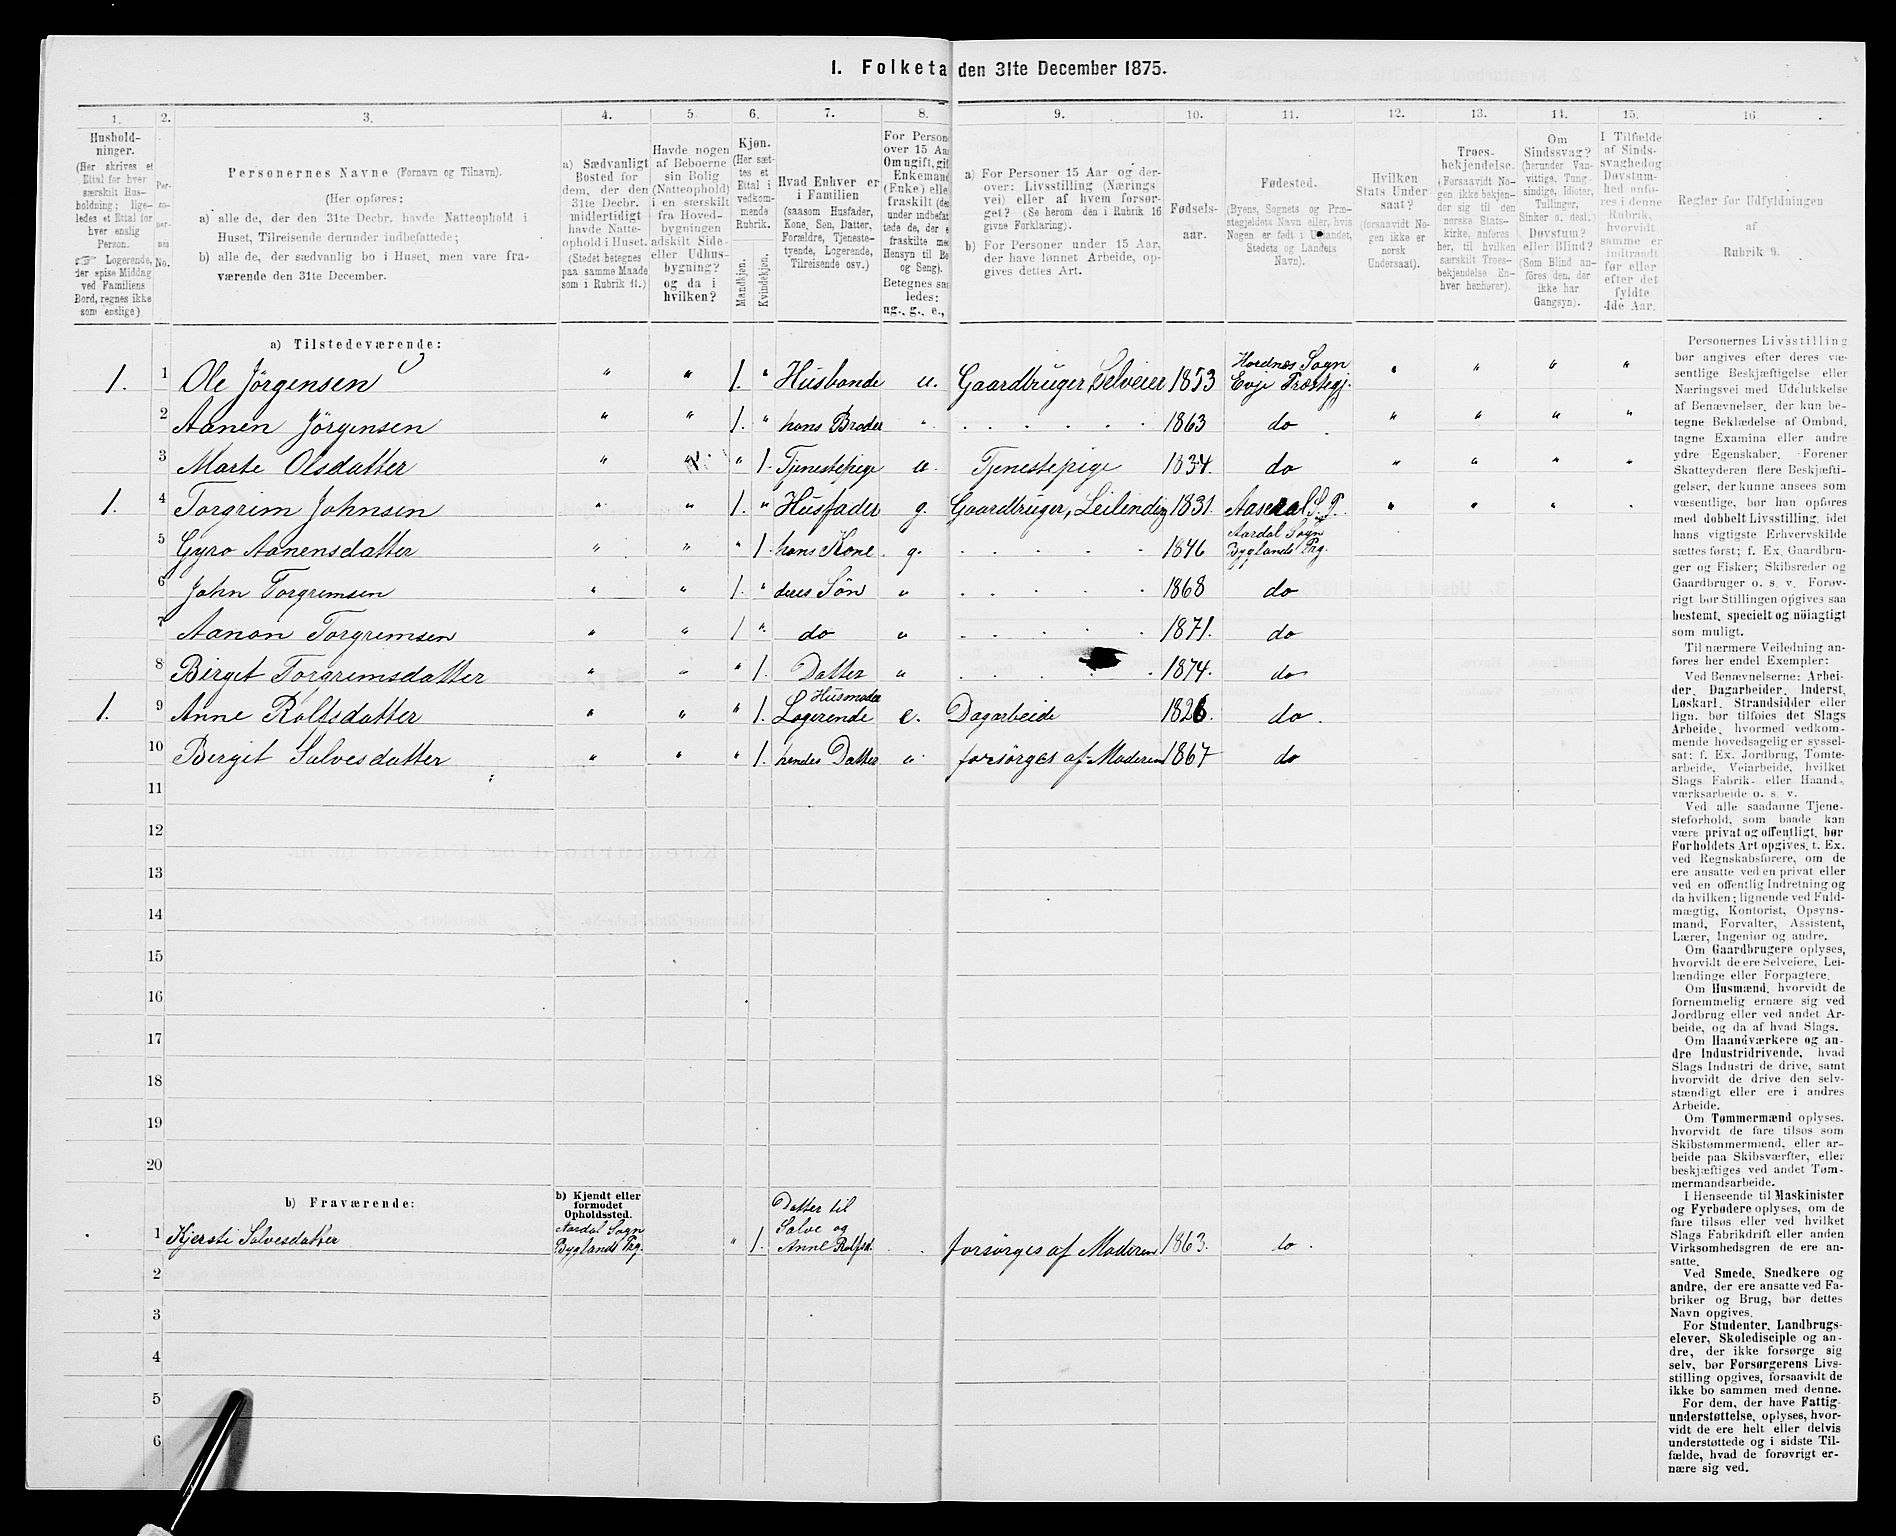 1. Folketa den 31te December 1875.
1. 2. 3. 4. 5. 6. 7. 8. 9. 10. 11. 12. 13. 14. 15. 16
Hushold-
ninger.
(Her skrives et
Ettal for hver
særskilt Hus-
holdning; lige-
ledes et Ettal for
hver enslig
Person.
Logerende,
der spise Middag
ved Familiens
Bord, regnes ikke
som enslige)
Per-
so-
ner-
nes
No.
Personernes Navne (Fornavn og Tilnavn).
(Her opføres:
a) alle de, der den 31te Decbr. havde Natteophold i
Huset, Tilreisende derunder indbefattede;
b) alle de, der sædvanlig bo i Huset, men vare fra-
værende den 31te December.
a) Sædvanligt
Bosted for
dem, der den
31te Decbr.
midlertidigt
havde Natte-
ophold i Huset.
(Stedet betegnes
paa samme Maade
som i Rubrik 11.)
Havde nogen
af Beboerne
sin Bolig
(Natteophold)
i en særskilt
fra Hoved-
bygningen
adskilt Side-
eller Udhus-
bygning?
og da i
hvilken?
Kjøn.
(Her sæt-
tes et
Ettal i
vedkom-
mende
Rubrik.
Mandkjøn.
Kvindekjøn.
Hvad Enhver er
i Familien
(saasom Husfader,
Kone, Søn, Datter,
Forældre, Tjeneste-
tyende, Logerende,
Tilreisende osv.)
For Person
over 15 Aa
Om ugift, gif
Enkemand
(Enke) elle
fraskilt (de
under indbefat
tede de, der e
fraskilte me
Hensyn til Bo
og Seng).
Betegnes saa
ledes:
ug., g., e.,
a) For Personer 15 Aar og der-
over: Livsstilling (Nærings
vei) eller af hvem forsør-
get? (Se herom den i Rubrik 16
givne Forklaring).
b) For Personer under 15 Aar,
der have lønnet Arbeide, op-
gives dettes Art.
Fødsels-
aar.
Fødested.
(Byens, Sognets og Præ-
stegjeldets Navn eller, hvis
Nogen er født i Udlandet,
Stedets og Landets
Navn).
Hvilken
Stats Under-
saat?
(forsaavidt No-
gen ikke er
norsk
Undersaat).
Troes-
bekjendelse.
(Forsaavidt No-
gen ikke bekjen-
der sig til den
norske Stats-
kirke, anføres
her, til hvilken
særskilt Troes-
bekjendelse En-
hver henhører).
Om
Sindssvag?
(herunder Van-
vittige, Tung-
sindige, Idioter,
Tullinger,
Sinker o. desl.)
Døvstum?
eller Blind?
(Som Blind an-
føres den, der
ikke har
Gangsyn).
I Tilfælde
af Sinds-
svaghed og
Døvstum-
hed anfø-
res i denne
Rubrik,
hvorvidt
samme er
indtraadt
før eller
efter det
fyldte
4de Aar.
Regler for Udfyldningen
af
Rubrik 9.
a) Tilstedeværende:
1. 1 Ole Jörgensen " " 1. " Husbonde u. Gaardbruger, Selveier 1853 Hordnæs Sogn Evje Præstegj. " " " "
2 Aanen Jörgensen " " 1. " hans Broder " 1863 do " " " "
3 Marte Olsdatter " " " 1. Tjenestepige u. Tjenestepige 1834. do " " " "
1. 4 Torgrim Johnsen " " 1. " Husfader g. Gaardbruger, Leilending 1831. Aaseral S. P. " " " "
5 Gyro Aanensdatter " " " 1. hans Kone g. 1846 Aardal Sogn Byglands Prg.
6 John Torgrimsen " " 1. " deres Sön " 1868 do
7 Aanon Torgrimsen " " 1 " do " 1871. do
8 Birget Torgrimsdatter " " " 1. Datter " 1874. do
1. 9 Anne Rolfsdatter " " " 1. Husmoder Logerende e. Dagarbeide 1826. do.
10 Bergit Salvesdatter " " " 1. hendes Datter " forsörges af Moderen 1867 do
11
12
13
14
15
16
17
18
19
20
b) Fraværende:
b) Kjendt eller
formodet
Opholdssted.
1 Kjersti Salvesdatter Aardal Sogn Byglands Prg. " 1. Datter til Salve og Anne Rolfsd. forsörges af Moderen 1863. do
2
3
4
5
6
Personernes Livsstilling
bør angives efter deres væ-
sentlige Beskjæftigelse eller
Næringsvei med Udelukkelse
af Benævnelser, der kun be-
tegne Beklædelse af Ombud,
tagne Examina eller andre
ydre Egenskaber. Forener
Skatteyderen flere Beskjæfti-
gelser, der kunne ansees som
væsentlige, bør han opføres
med dobbelt Livsstilling, idet
hans vigtigste Erhvervskilde
sættes først; f. Ex. Gaardbru-
ger og Fisker; Skibsreder og
Gaardbruger o. s. v. Forøv-
rigt bør Stillingen opgives saa
bestemt, specielt og nöiagtigt
som muligt.
Til nærmere Veiledning an-
føres her endel Exempler:
Ved Benævnelserne: Arbei-
der, Dagarbeider, Inderst,
Løskarl, Strandsidder eller
lign. bør tilføies det Slags
Arbeide, hvormed vedkom-
mende hovedsagelig er syssel-
sat; f. Ex. Jordbrug, Tomte-
arbeide, Veiarbeide, hvilket
Slags Fabrik- eller Haand-
værksarbeide o. s. v.
Ved alle saadanne Tjene-
steforhold, som baade kan
være privat og offentligt, bør
Forholdets Art opgives, t. Ex.
ved Regnskabsførere, om de
ere ansatte ved en privat eller
ved en offentlig Indretning og
da hvilken; lignende ved Fuld-
mægtig, Kontorist, Opsyns-
mand, Forvalter, Assistent,
Lærer, Ingeniør og andre.
Om Gaardbrugere oplyses,
hvorvidt de ere Selveiere, Lei-
lændinge eller Forpagtere.
Om Husmænd, hvorvidt de
fornemmelig ernære sig ved
Jordbrug eller ved andet Ar-
beide, og da af hvad Slags.
Om Haandværkere og an-
dre Industridrivende, hvad
Slags Industri de drive, samt
hvorvidt de drive den selv-
stændigt eller ere i andres
Arbeide.
Om Tømmermænd oplyses,
hvorvidt de fare tilsøs som
Skibstømmermænd, eller ar-
beide paa Skibsværfter, eller
beskjæftiges ved andet Tøm-
mermandsarbeide.
I Henseende til Maskinister
og Fyrbødere oplyses, om de
fare tilsøs eller ved hvilket
Slags Fabrikdrift eller anden
Virksomhedsgren de ere an-
satte.
Ved Smede, Snedkere og
andre, der ere ansatte ved Fa-
briker og Brug, bør dettes
Navn opgives.
For Studenter, Landbrugs-
elever, Skoledisciple og an-
dre, der ikke forsørge sig
selv, bør Forsørgerens Livs-
stilling opgives, forsaavidt de
ikke bo sammen med denne.
For dem, der have Fattig-
understøttelse, oplyses, hvor-
vidt de ere helt eller delvis
understøttede og i sidste Til-
fælde, hvad de forøvrigt er-
nære sig ved.